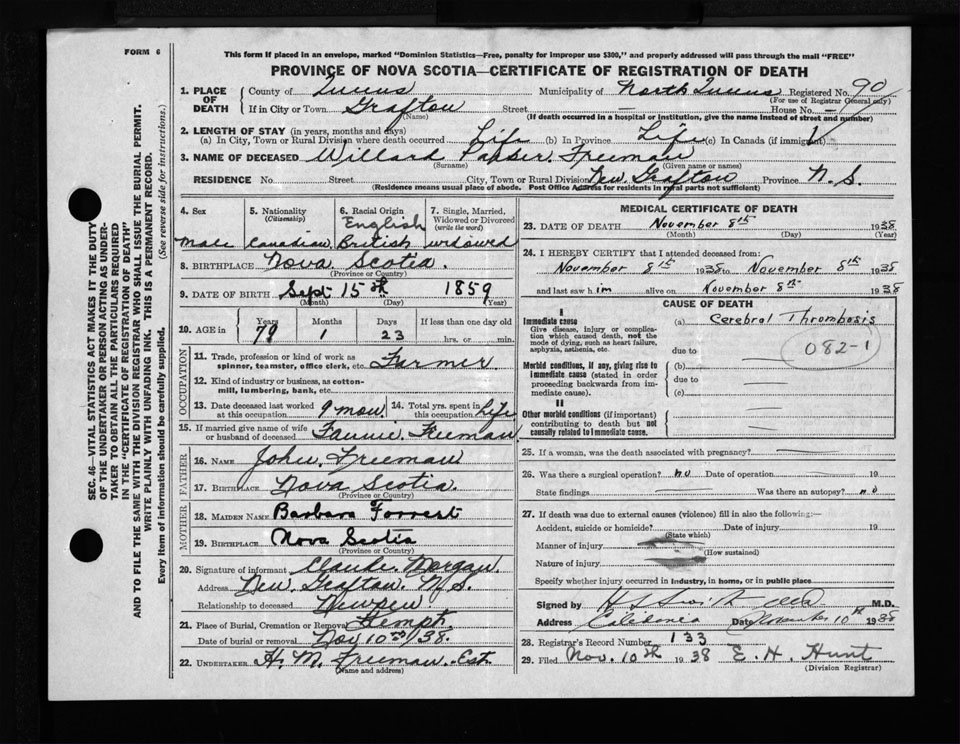 FORM 6
This form if placed in an envelope, marked "Dominion Statistics—Free, penalty for improper use $300," and properly addressed will pass through the mail "FREE"
PROVINCE OF NOVA SCOTIA—CERTIFICATE OF REGISTRATION OF DEATH
1. PLACE OF DEATH
County of Queens Municipality of North Queens Registered No. 90
(For use of Registrar General only)
If in City or Town Grafton Street — House No. —
(Name) (If death occurred in a hospital or institution, give the name instead of street and number)
2. LENGTH OF STAY (in years, months and days)
(a) In City, Town or Rural Division where death occurred Life (b) In Province Life (c) In Canada (if immigrant)
3. NAME OF DECEASED Willard Freeman
(Surname) (Given name or names)
RESIDENCE No. Street City, Town or Rural Division New Grafton Province N.S.
(Residence means usual place of abode. Post Office Address for residents in rural parts not sufficient)
4. Sex Male
5. Nationality (Citizenship) Canadian
6. Racial Origin English British
7. Single, Married, Widowed or Divorced (write the word) widowed
8. BIRTHPLACE Nova Scotia.
(Province or Country)
9. DATE OF BIRTH Sept 15th 1859
(Month) (Day) (Year)
10. AGE in Years 79 Months 1 Days 23 If less than one day old hrs. or min.
OCCUPATION
11. Trade, profession or kind of work as spinner, teamster, office clerk, etc. Farmer
12. Kind of industry or business, as cotton-mill, lumbering, bank, etc.
13. Date deceased last worked at this occupation 9 mon.
14. Total yrs. spent in this occupation Life
15. If married give name of wife or husband of deceased Fannie Freeman
FATHER
16. NAME John Freeman
17. BIRTHPLACE Nova Scotia.
(Province or Country)
MOTHER
18. MAIDEN NAME Barbara Forrest
19. BIRTHPLACE Nova Scotia
(Province or Country)
20. Signature of informant Claude Morgan.
Address New Grafton. N.S.
Relationship to deceased
21. Place of Burial, Cremation or Removal Kempt.
Date of burial or removal Nov 10th/38.
22. UNDERTAKER H. M. Freeman. Est.
(Name and address)
MEDICAL CERTIFICATE OF DEATH
23. DATE OF DEATH November 8th 1938
(Month) (Day) (Year)
24. I HEREBY CERTIFY that I attended deceased from:
November 8th 1938 to November 8th 1938
and last saw him alive on November 8th 1938
CAUSE OF DEATH
I
Immediate cause
Give disease, injury or complication which caused death, not the mode of dying, such as heart failure, asphyxia, asthenia, etc.
(a) Cerebral Thrombosis
082-1
due to
Morbid conditions, if any, giving rise to immediate cause (stated in order proceeding backwards from immediate cause).
(b)
due to
(c)
II
Other morbid conditions (if important) contributing to death but not causally related to immediate cause.
25. If a woman, was the death associated with pregnancy?
26. Was there a surgical operation? no Date of operation 19
State findings Was there an autopsy? no
27. If death was due to external causes (violence) fill in also the following:—
Accident, suicide or homicide? Date of injury 19
(State which)
Manner of injury
(How sustained)
Nature of injury
Specify whether injury occurred in Industry, in home, or in public place
Signed by M.D.
Address Caledonia Date November 10th 1938
28. Registrar's Record Number 133
29. Filed Nov. 10th 1938 E. H. Hunt
(Division Registrar)
SEC. 46—VITAL STATISTICS ACT MAKES IT THE DUTY
OF THE UNDERTAKER OR PERSON ACTING AS UNDER-
TAKER TO OBTAIN ALL THE PARTICULARS REQUIRED
IN THE "CERTIFICATE OF REGISTRATION OF DEATH"
AND TO FILE THE SAME WITH THE DIVISION REGISTRAR WHO SHALL ISSUE THE BURIAL PERMIT.
WRITE PLAINLY WITH UNFADING INK. THIS IS A PERMANENT RECORD.
Every item of information should be carefully supplied. (See reverse side for instructions.)